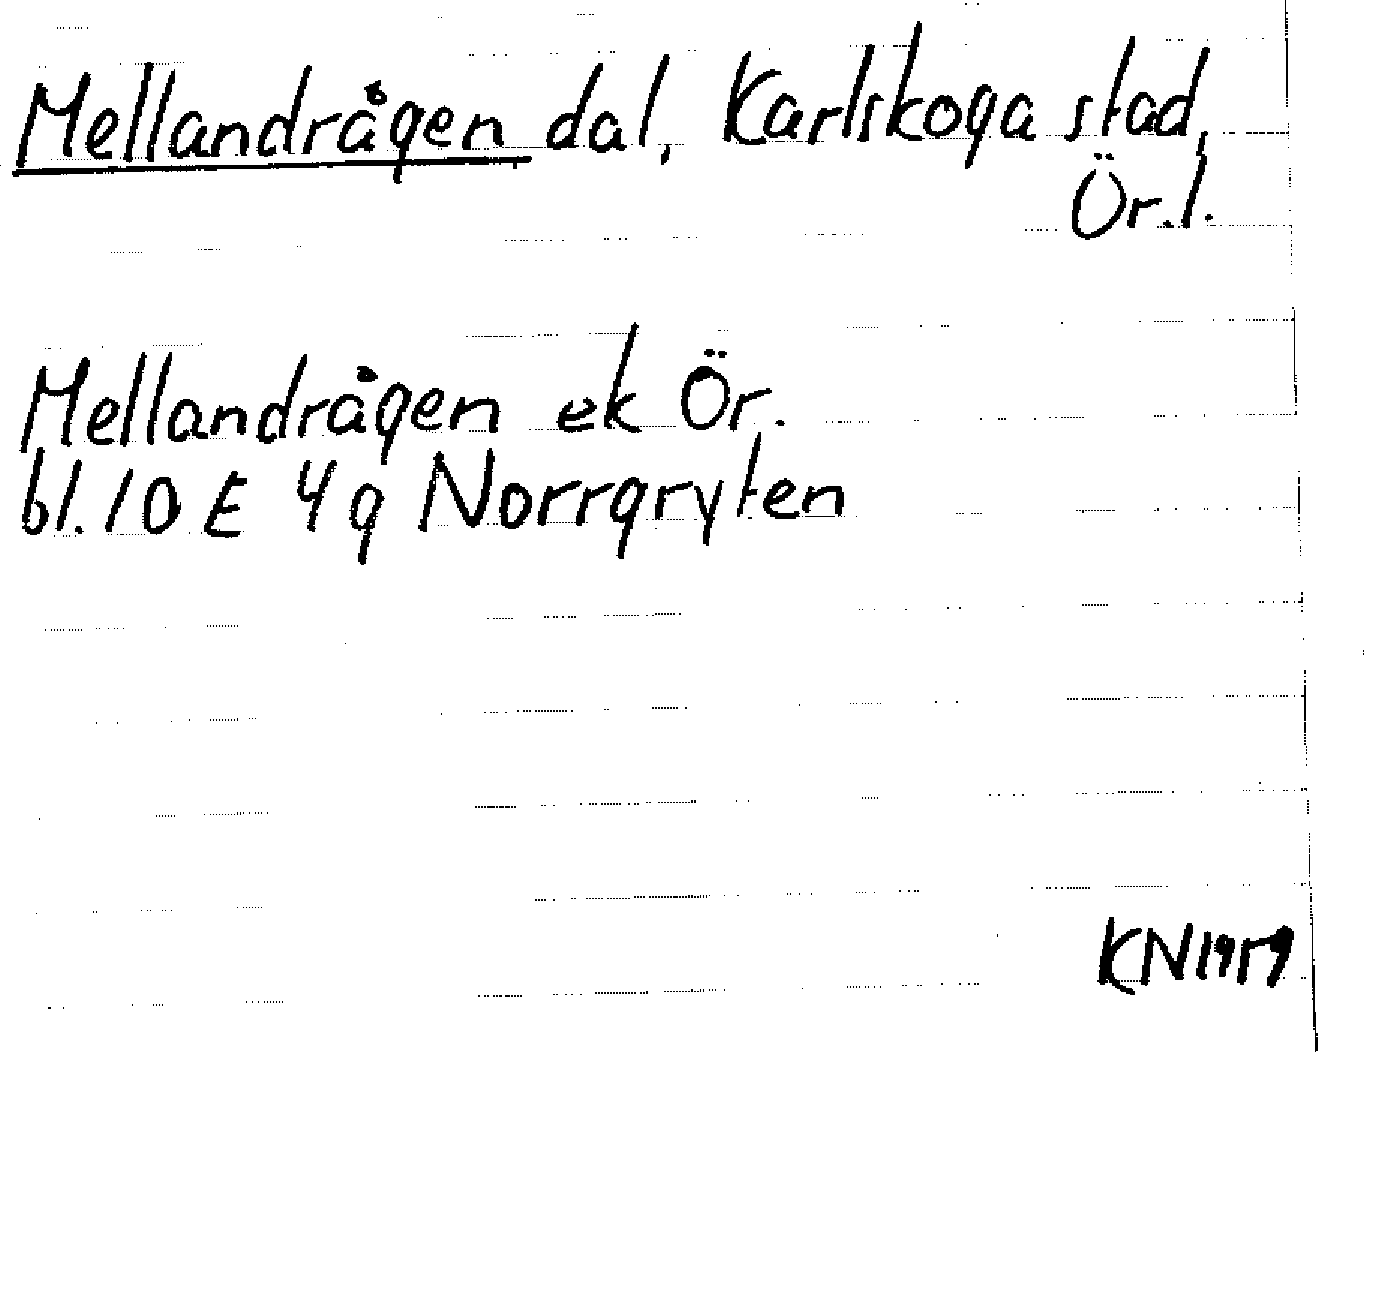 Mellandrågen dal, Karlskoga stad,
Ör.l.
Mellandrågen ek Ör.
bl. 10 E 4g Norrgryten
KN